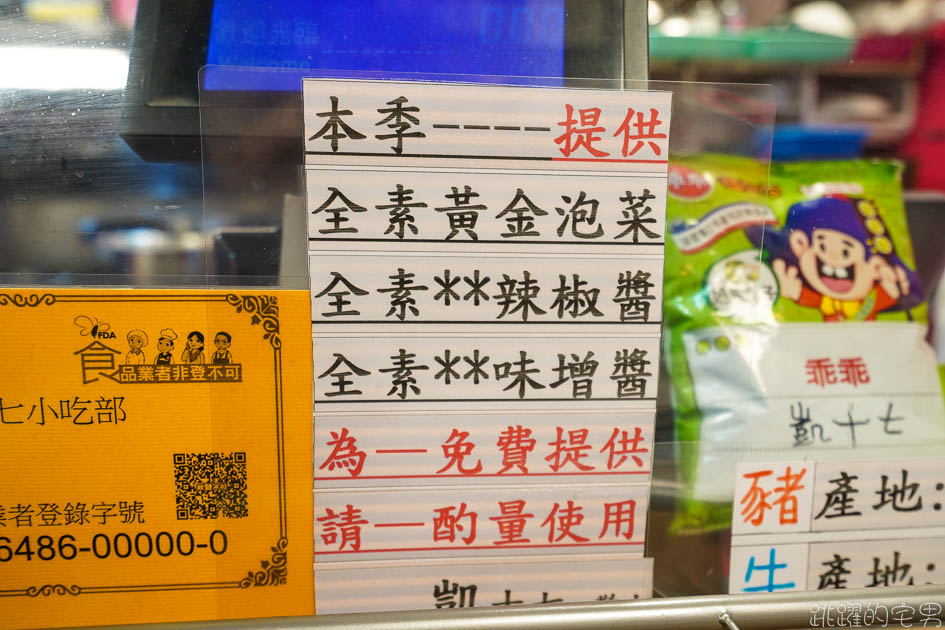 Welcome
本季----提供
全素黃金泡菜
全素**辣椒醬
全素**味增醬
為—免費提供
請—酌量使用
凱十七
FDA
食品業者非登不可
七小吃部
業者登錄字號
6486-00000-0
乖乖
凱十七
豬 產地:
牛 產地:
跳躍的宅男